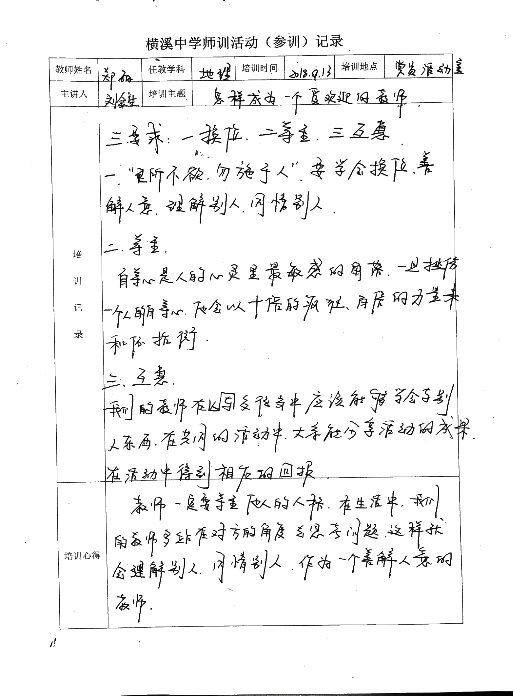 横溪中学师训活动（参训）记录
教师姓名 郑 任教学科 地理 培训时间 2018.9.13 培训地点 党员活动室
主讲人 刘金生 培训主题 怎样成为一个受欢迎的教师
培训记录
三要求：一换位、二尊重、三互惠
一、“己所不欲，勿施于人”，要学会换位，善
解人意，理解别人，同情别人
二、尊重
自尊心是人的心灵里最敏感的角落，一旦挫伤
一个人的自尊心，他会以十倍的疯狂、百倍的力量来
和你抗衡
三、互惠
我们的教师在与交往当中应该能够学会与别
人东西，在共同的活动中，大家能分享活动的成果
在活动中得到相应的回报
培训心得
教师一定要尊重他人的人格，在生活中，我们
的教师多站在对方的角度去思考问题，这样就
会理解别人，同情别人，作为一个善解人意的
教师.